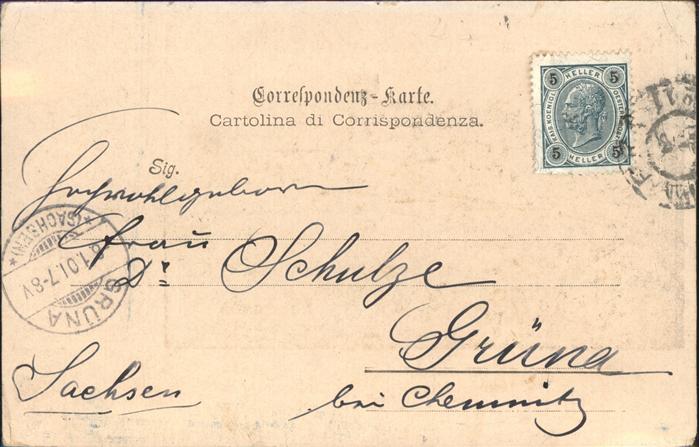 Correspondenz-Karte.
Cartolina di Corrispondenza.
5 HELLER 5
KAIS. KOENIGL.
5 HELLER 5
Sig.
Hochwohlgeboren
Frau
Dr Schulze
Grüna
bei Chemnitz
Sachsen
GRÜNA
(SACHSEN)
1.01.7-8V